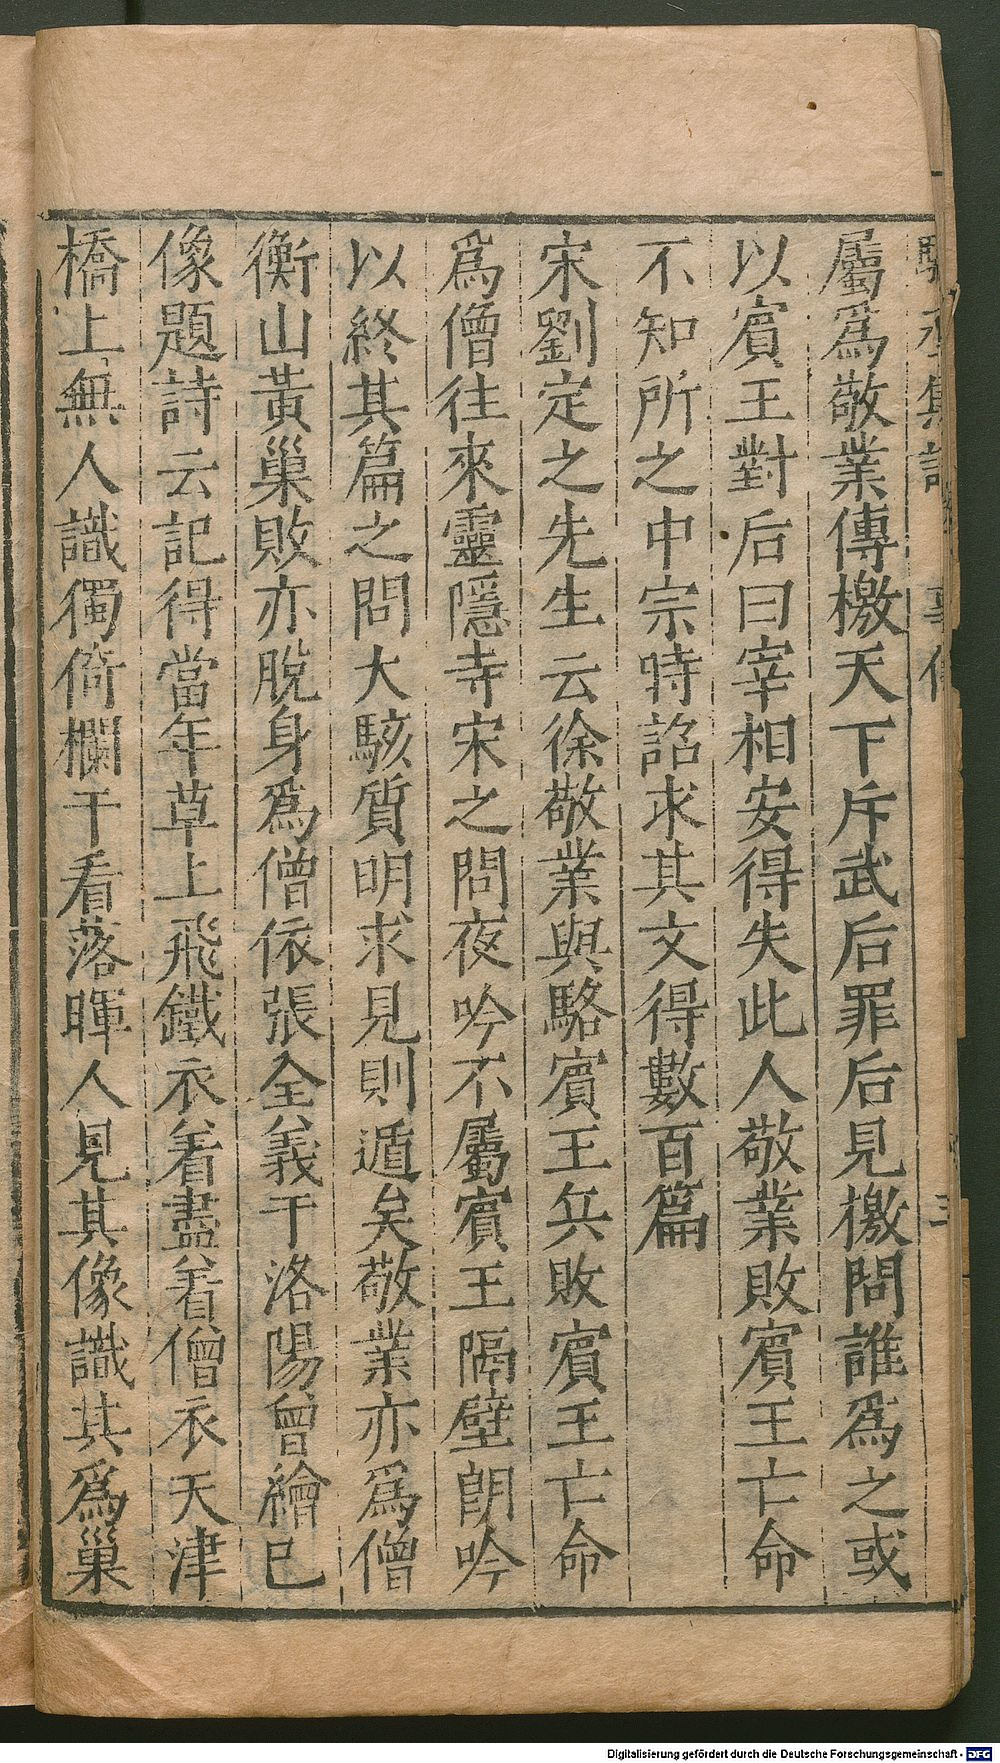 屬爲敬業傳檄天下斥武后罪后見檄問誰爲之或
以賓王對后曰宰相安得失此人敬業敗賓王亡命
不知所之中宗時詔求其文得數百篇
宋劉定之先生云徐敬業與駱賓王兵敗賓王亡命
爲僧往來靈隱寺宋之問夜吟不屬賓王隔壁朗吟
以終其篇之問大駭質明求見則遁矣敬業亦爲僧
衡山黃巢敗亦脫身爲僧依張全義于洛陽曾繪已
像題詩云記得當年草上飛鐵衣着盡着僧衣天津
橋上無人識獨倚欄干看落暉人見其像識其爲巢
Digitalisierung gefördert durch die Deutsche Forschungsgemeinschaft - DFG